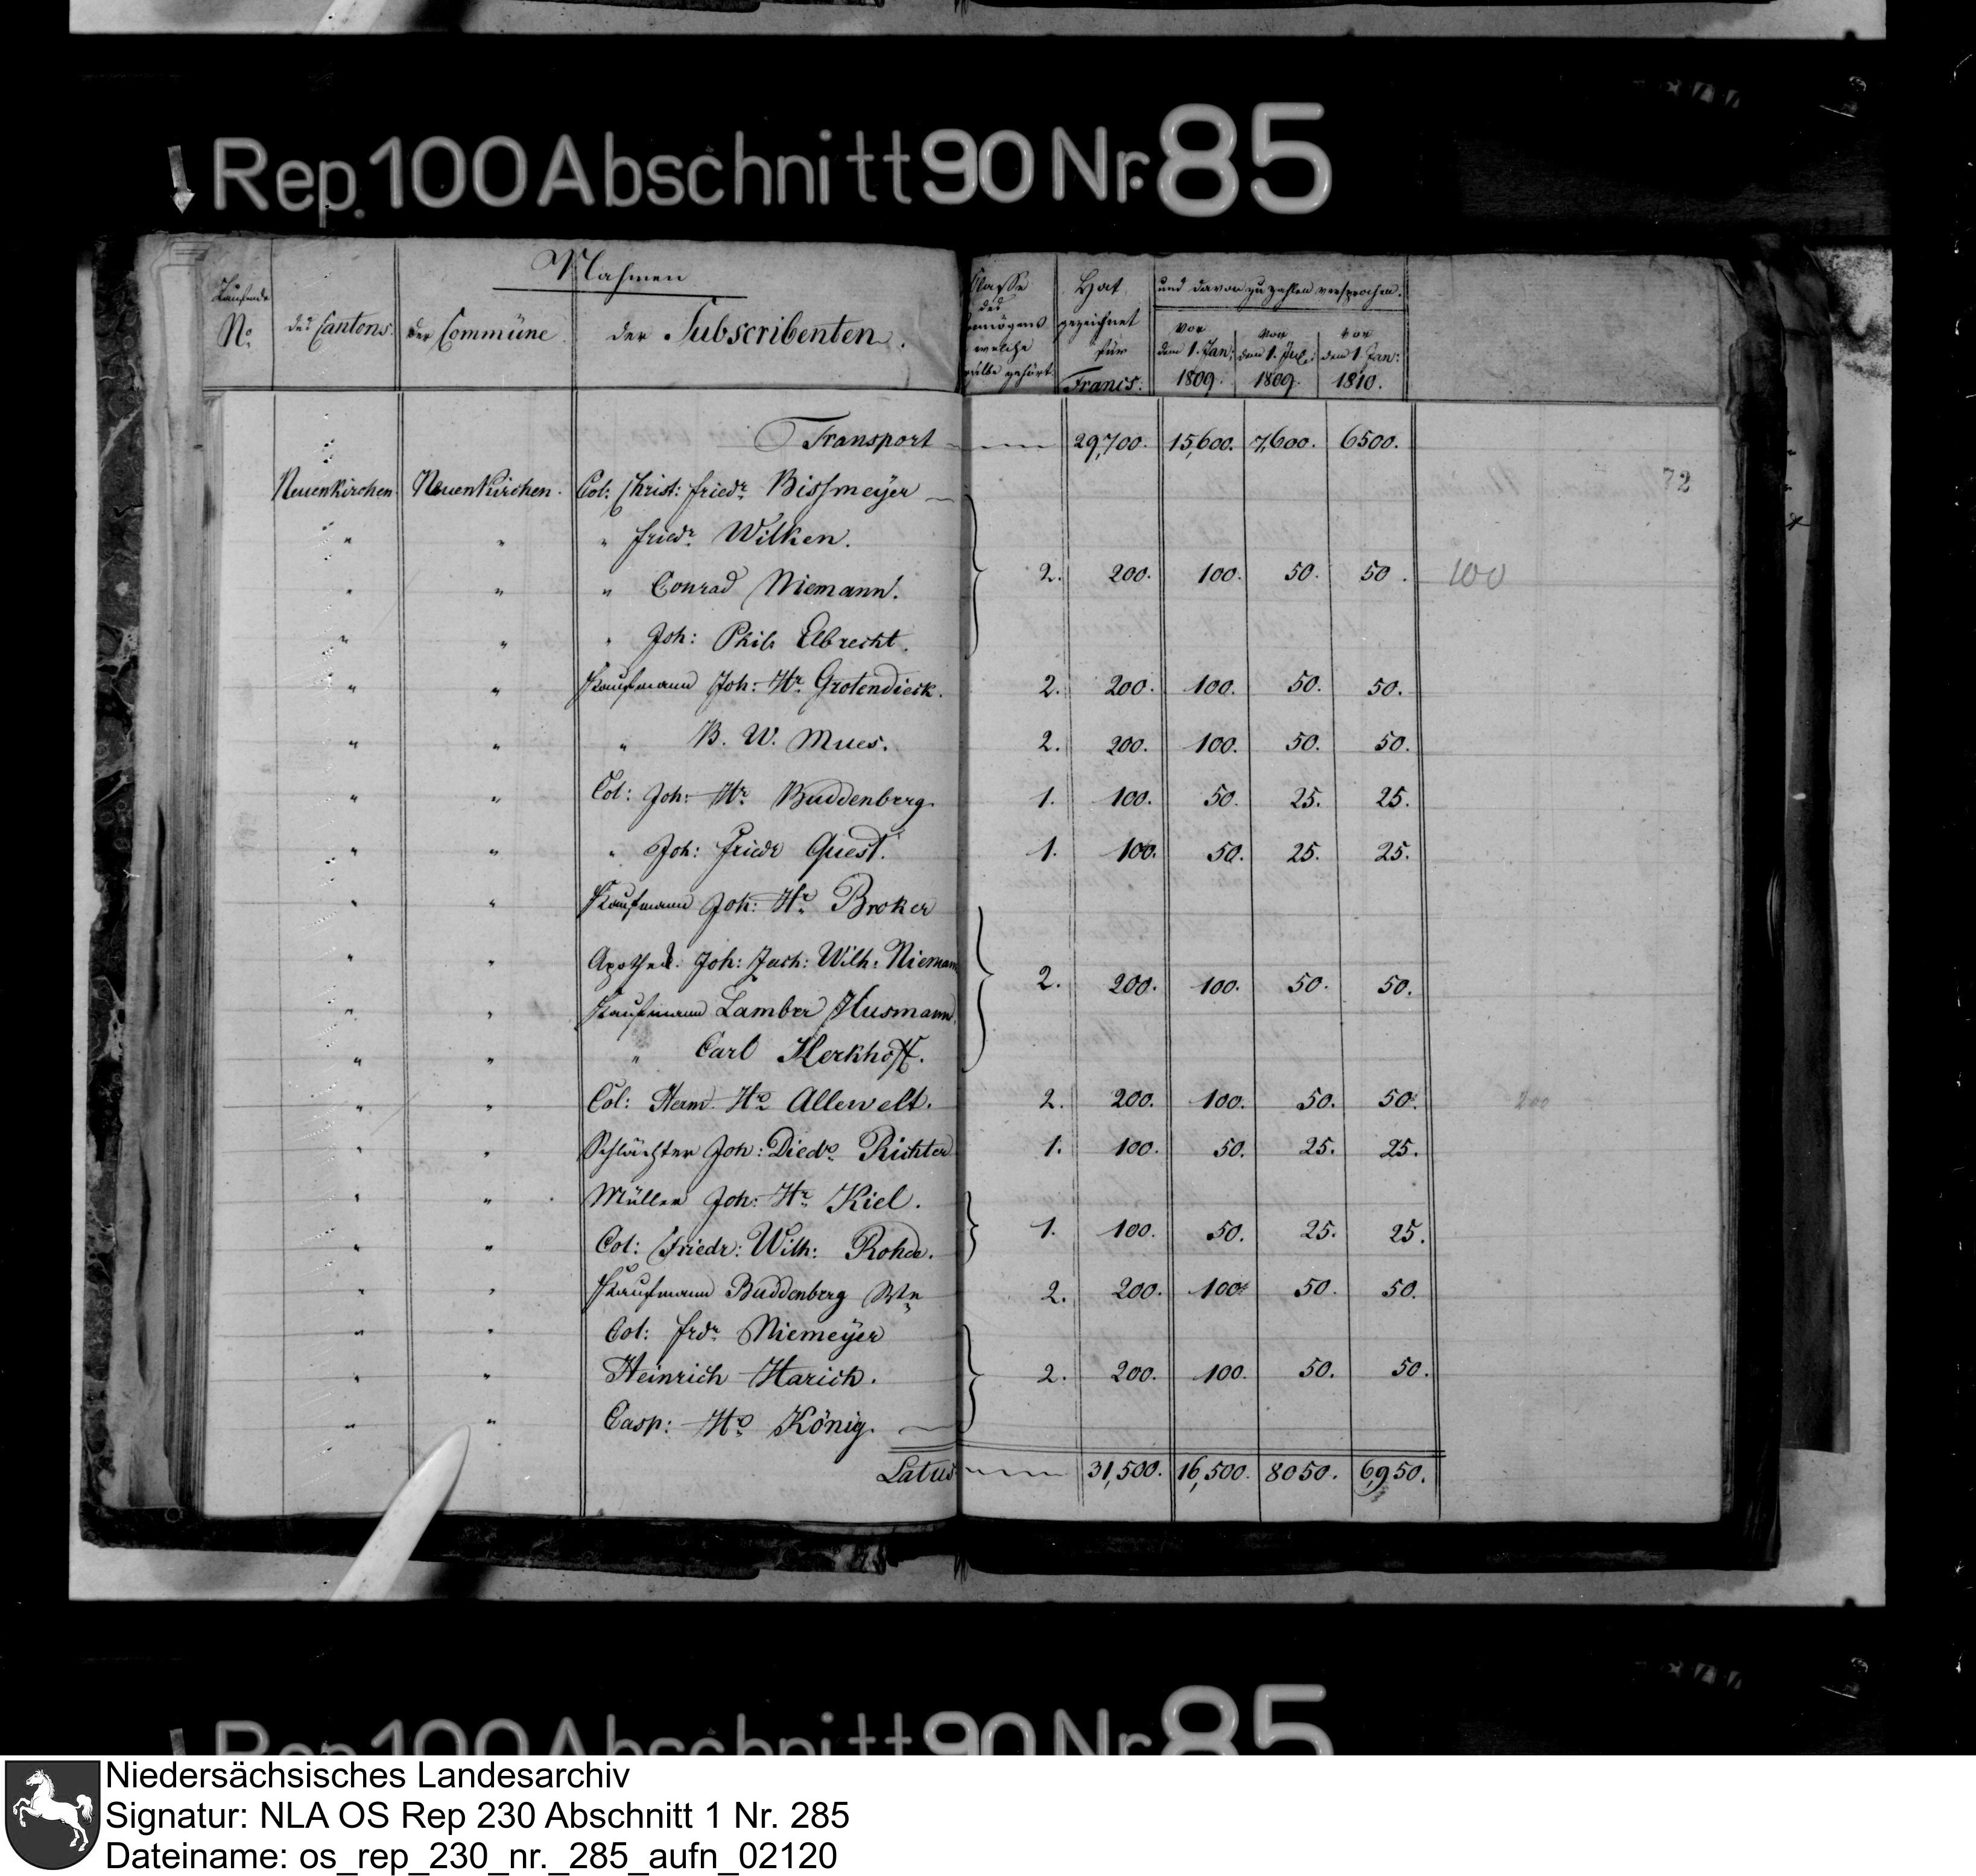 Rep. 100 Abschnitt 90 Nr. 85
Nahmen
Laufende No.
des Cantons.
der Commüne
der Subscribenten.
Classe des Vermögens welche derselbe gehört.
Hat gezeichnet für Francs.
und davon zu zahlen versprochen.
vor dem 1. Jan: 1809.
vor dem 1. Jul: 1809.
vor dem 1. Jan: 1810.
Transport 29,700. 15,600. 7,600. 6500.
72
Neuenkirchen Neuenkirchen. Col: Christ: Friedr. Bissmeyer
" " " Friedr. Wilken.
" " " Conrad Niemann. 2. 200. 100. 50. 50. 100
" " " Joh: Phil. Elbrecht.
" " Kaufmann Joh: Hr. Grotendieck. 2. 200. 100. 50. 50.
" " " B. W. Mues. 2. 200. 100. 50. 50.
" " Col: Joh: Hr. Buddenberg. 1. 100. 50. 25. 25.
" " " Joh: Friedr Quest. 1. 100. 50. 25. 25.
" " Kaufmann Joh: Hr. Broker
" " Apothek. Joh: Zach: Wilh: Niemann 2. 200. 100. 50. 50.
" " Kaufmann Lamber Husmann.
" " " Carl Kerkhoff.
" " Col: Herm. Hr. Allewelt. 2. 200. 100. 50. 50. 200
" " Schlächter Joh: Diedr. Richter 1. 100. 50. 25. 25.
" " Müller Joh: Hr. Kiel.
" " Col: Friedr: Wilh: Rohde. 1. 100. 50. 25. 25.
" " Kaufmann Buddenberg Wn 2. 200. 100. 50. 50.
" " Col: Frdr. Niemeyer
" " Heinrich Harich. 2. 200. 100. 50. 50.
" " Casp: Hr. König.
Latus 31,500. 16,500. 8050. 6,950.
Rep. 100 Abschnitt 90 Nr. 85
Niedersächsisches Landesarchiv
Signatur: NLA OS Rep 230 Abschnitt 1 Nr. 285
Dateiname: os_rep_230_nr._285_aufn_02120